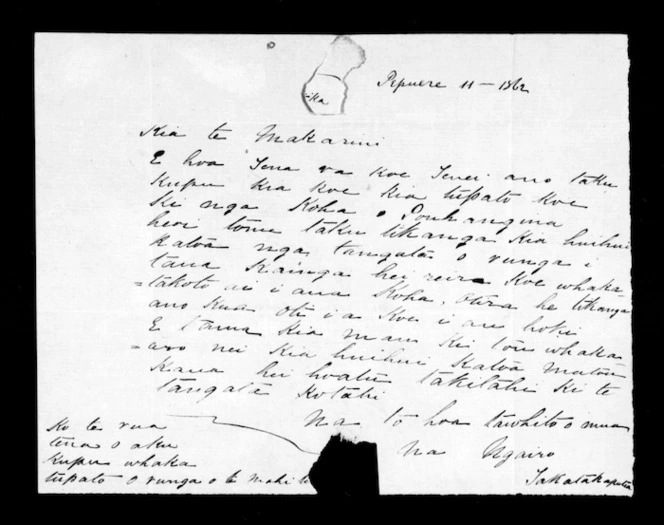 Pepuere 11 - 1862
ika
Kia te Makarini
E hoa Tena ra koe Tenei ano taku
kupu kia koe kia tupato koe
ki nga Koha o Pouhangina
heoi tonu taku tikanga kia huihui
katoa nga tangata o runga i
tana kainga hei reira koe whaka
=takoto ai i ana Koha, otira he tikanga
ano kua oti i a koe i au hoki
E tama kia mau ki tou whaka
=aro nei kia huihui katoa matou
kaua hei hoatu takitahi ki te
tangata kotahi
Na to hoa tawhito o mua
na Ngairo
Takatakaputea
Ko te rua
tena o aku
kupu whaka
tupato o runga o te mahi